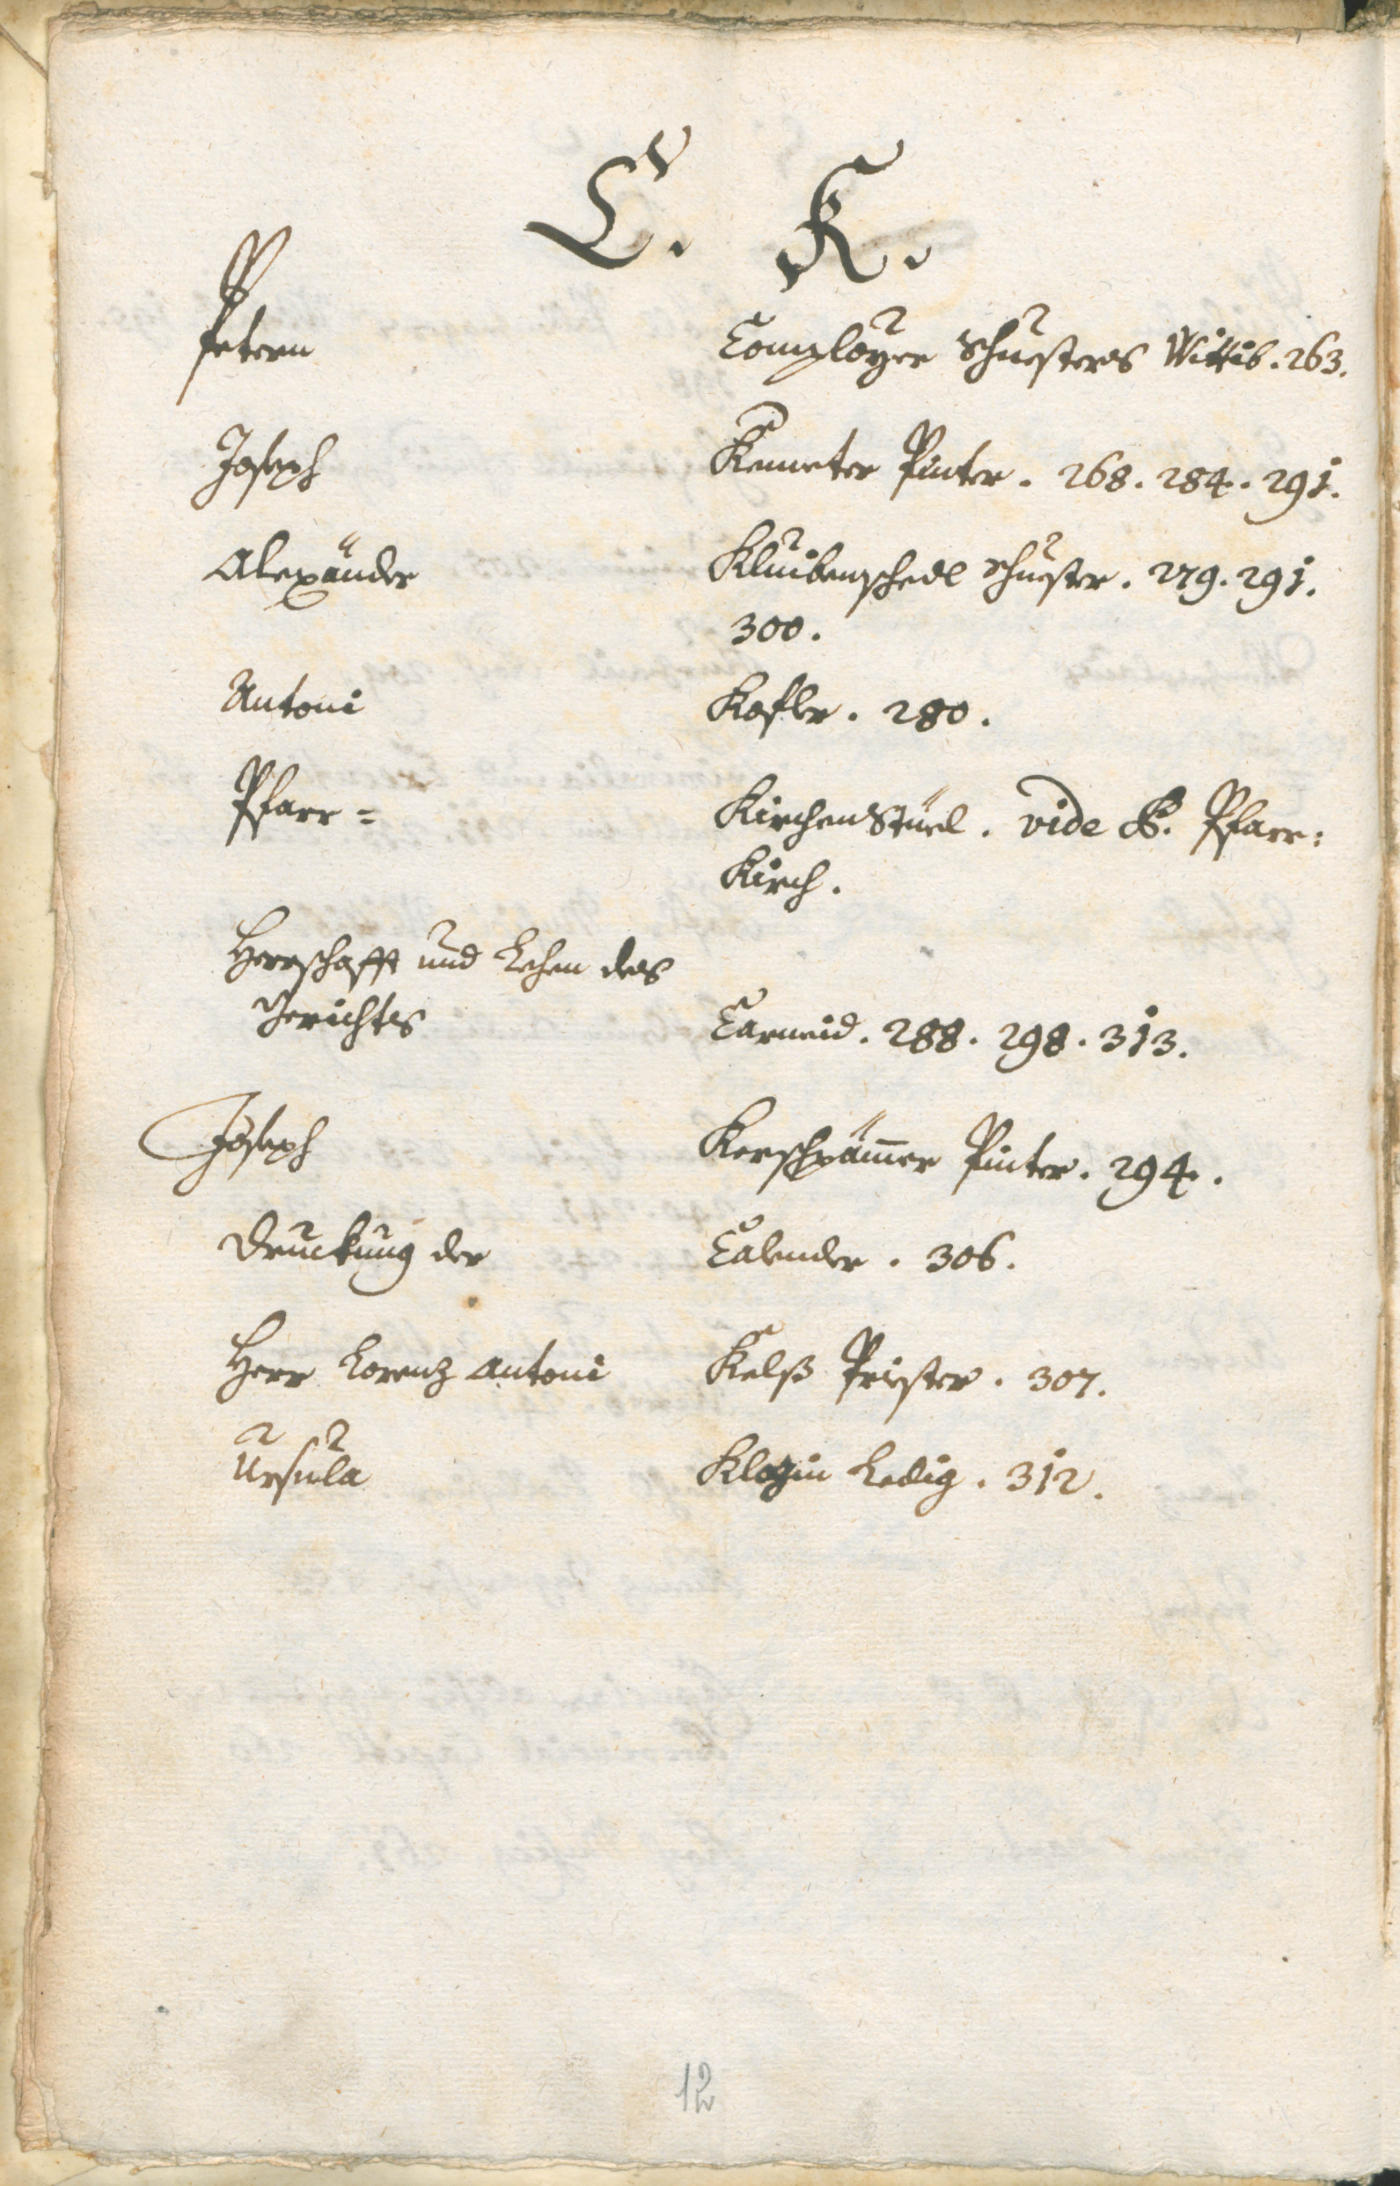 C. K.
Petern Comployer Schuesters Wittib. 263.
Joseph Kemeter Pinter. 268. 284. 291.
Alexander Kluibenschedl Schuester. 279. 291.
300.
Antoni Kofler. 280.
Pfarr= KirchenStüel. vide P. Pfarr:
Kirch.
Herrschafft und Lehen des
Gerichts Carneid. 288. 298. 313.
Joseph Kerschpämer Pinter. 294.
Druckung der Calender. 306.
Herr Lorenz Antoni Kelß Priester. 307.
Ursula Klozin Ledig. 312.
12